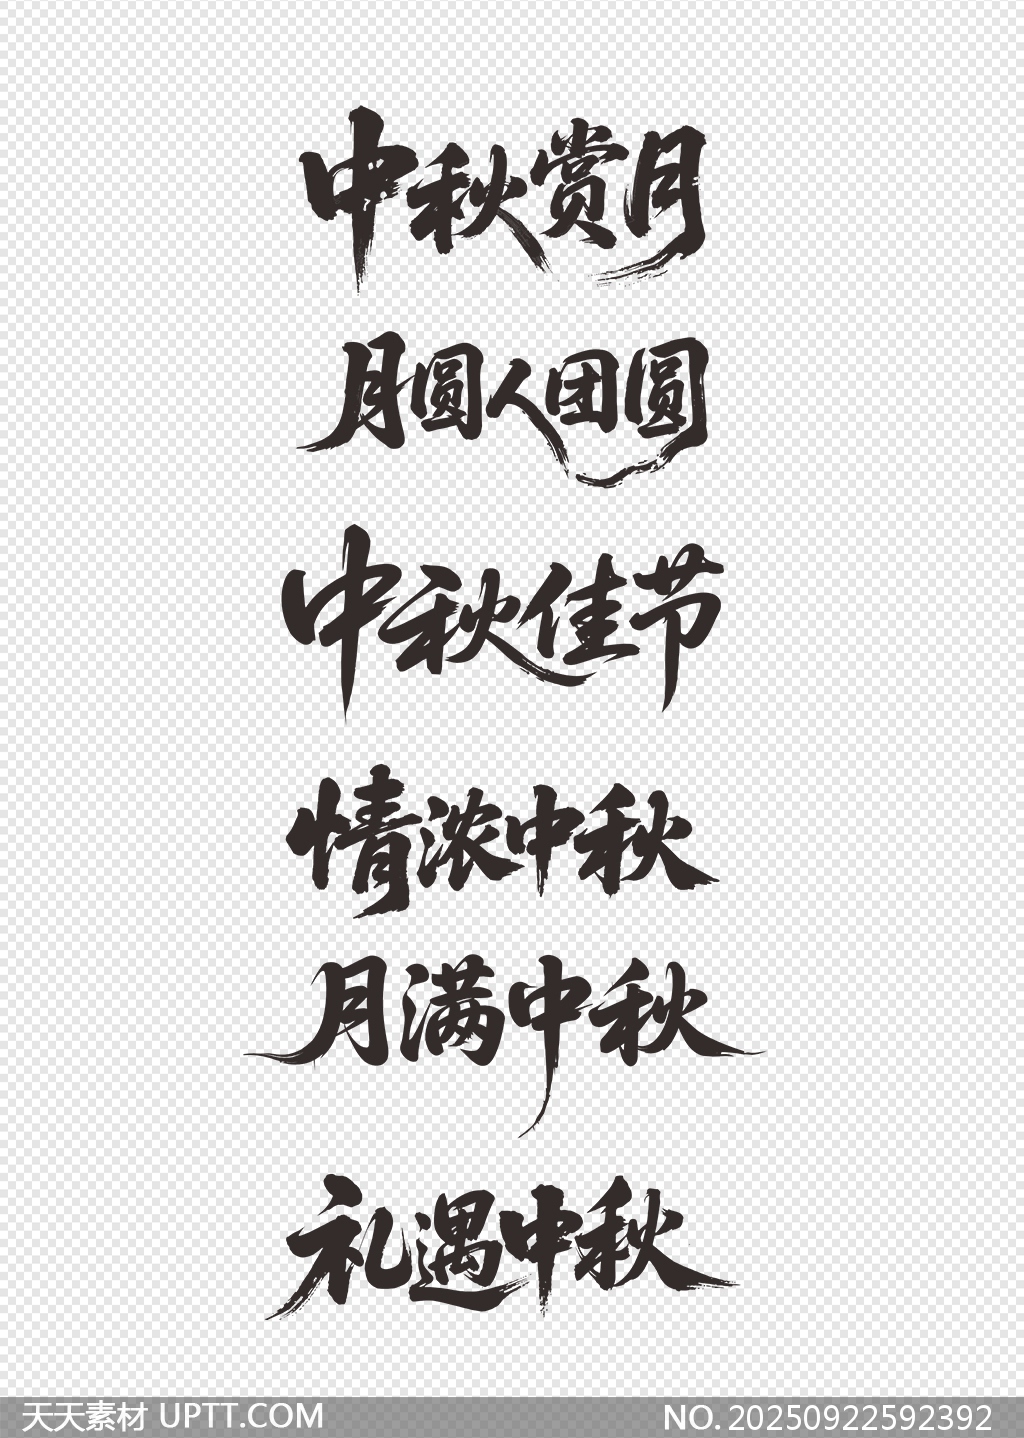 中秋赏月
月圆人团圆
中秋佳节
情浓中秋
月满中秋
礼遇中秋
天天素材 UPTT.COM
NO. 20250922592392